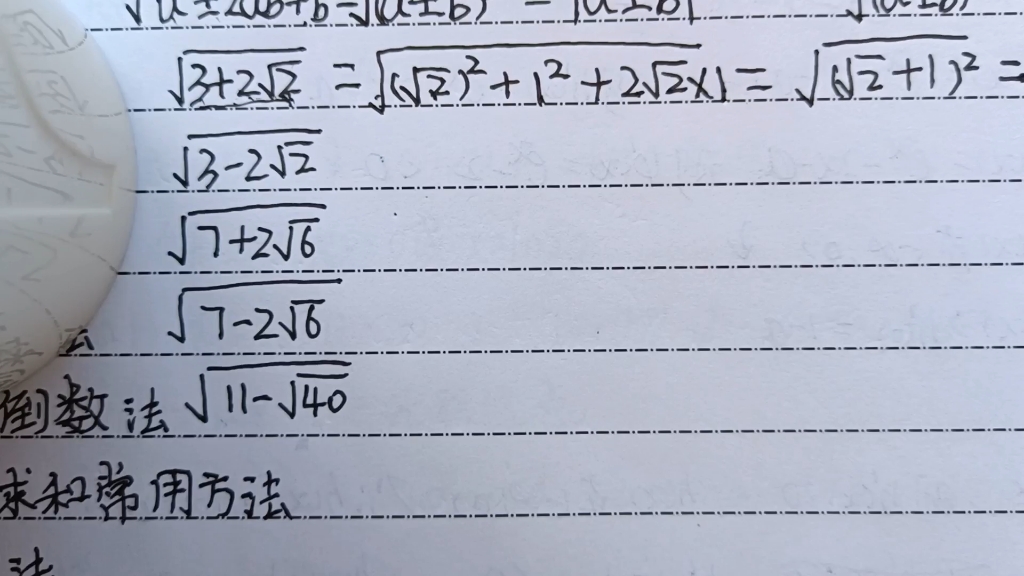 √(3+2√2) = √((√2)²+1²+2√2×1) = √((√2+1)²) =
√(3-2√2)
√(7+2√6)
√(7-2√6)
倒数法 √(11-√40)
求和常用方法
法